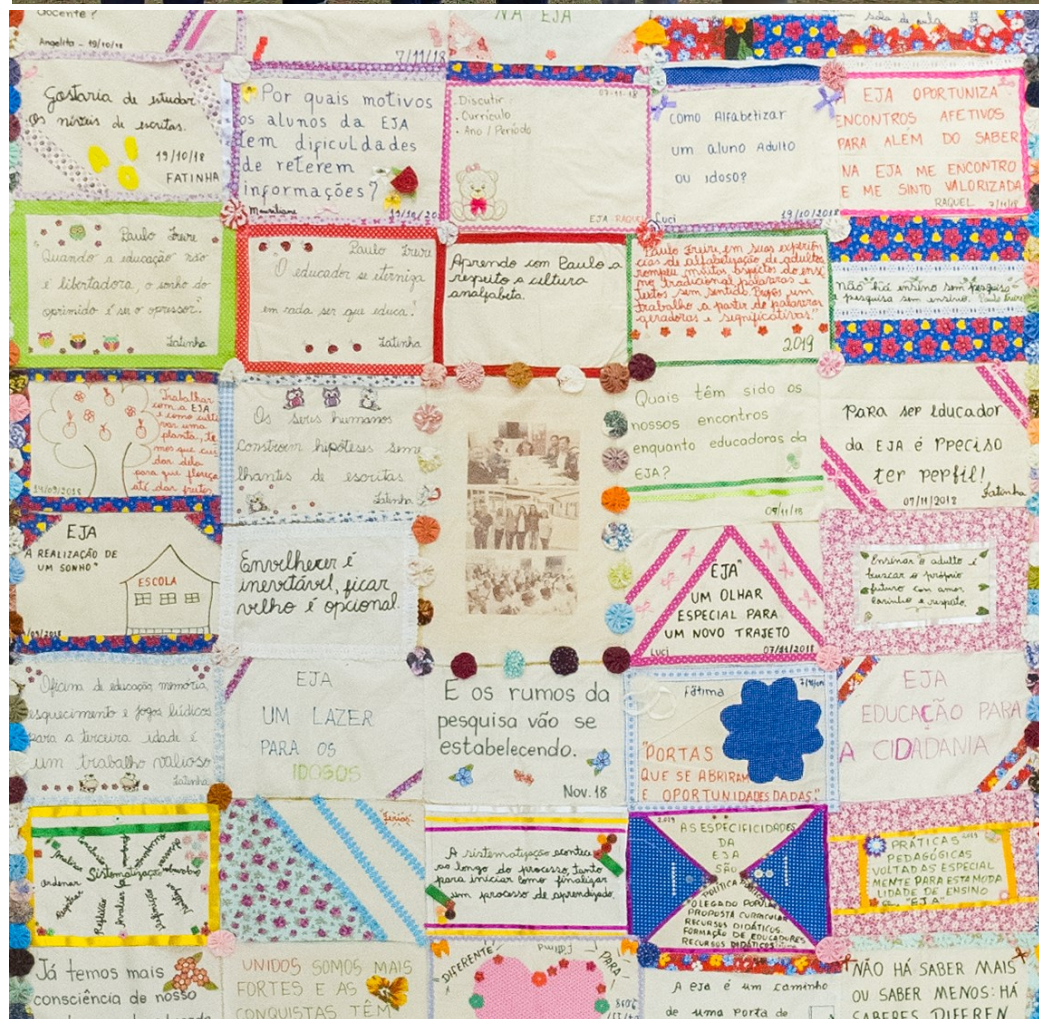 docente?
Angelita - 19/10/18
7/11/18
NA EJA
sala de aula
Gostaria de estudar
Os níveis de escritas.
19/10/18
FATINHA
Por quais motivos
os alunos da EJA
tem dificuldades
de reterem
informações?
19/10/20
Discutir
. Currículo
. Ano / Período
07.11.18
EJA - RAQUEL
Como Alfabetizar
um aluno Adulto
ou Idoso?
Luci
19/10/2018
A EJA OPORTUNIZA
ENCONTROS AFETIVOS
PARA ALÉM DO SABER
NA EJA ME ENCONTRO
E ME SINTO VALORIZADA
RAQUEL 7/11/18
Paulo Freire
Quando a educação não
é libertadora, o sonho do
oprimido é ser o opressor."
Fatinha
Paulo Freire
"O educador se eterniza
em cada ser que educa."
Fatinha
Aprendo com Paulo a
respeito a cultura
analfabeta.
Paulo Freire em suas experiên
cias de alfabetização de adultos
rompeu muitos aspectos do ensi
no tradicional palavras e
textos sem sentido. Propôs um
trabalho a partir de palavras
geradoras e significativas."
2019
não há ensino sem pesquisa
e pesquisa sem ensino. Paulo Freire
Trabalhar
com a EJA
é como culti
var uma
planta, te
mos que cui
dar dela
para que floresça
até dar frutos
14/09/2018
Os seres humanos
constroem hipóteses seme
lhantes de escritas
Fatinha
Quais têm sido os
nossos encontros
enquanto educadoras da
EJA?
07/11/18
Para ser educador
da EJA é preciso
ter perfil!
Fatinha
07/11/2018
EJA
A REALIZAÇÃO DE
UM SONHO"
ESCOLA
/09/2018
Envelhecer é
inevitável, ficar
velho é opcional.
EJA"
UM OLHAR
ESPECIAL PARA
UM NOVO TRAJETO
Luci
07/11/2018
Ensinar o adulto é
buscar o próprio
futuro com amor
carinho e respeito.
Oficina de educação, memória,
esquecimento e jogos lúdicos
para a terceira idade é
um trabalho valioso
Fatinha
EJA
UM LAZER
PARA OS
IDOSOS
E os rumos da
pesquisa vão se
estabelecendo.
Nov. 18
Fátima
"PORTAS
QUE SE ABRIRAM
E OPORTUNIDADES DADAS"
EJA
EDUCAÇÃO PARA
A CIDADANIA
Sistematização
Analisar
ordenar
Repetir
Reflexão
Avaliar
A sistematização acontece
ao longo do processo, tanto
para iniciar como finalizar
um processo de aprendizado.
2019
AS ESPECIFICIDADES
DA
EJA
SÃO
POLÍTICA
O LEGADO POPULAR
PROPOSTA CURRICULAR
RECURSOS DIDÁTICOS.
FORMAÇÃO DE EDUCADORES
RECURSOS DIDÁTICOS
2019
PRÁTICAS
PEDAGÓGICAS
VOLTADAS ESPECIAL
MENTE PARA ESTA MODA
LIDADE DE ENSINO
"EJA"
Já temos mais
consciência de nosso
UNIDOS SOMOS MAIS
FORTES E AS
CONQUISTAS TÊM
DIFERENTE
Fátima
PARA
2018
A EJA é um caminho
de uma porta de
NÃO HÁ SABER MAIS
OU SABER MENOS: HÁ
SABERES DIFEREN